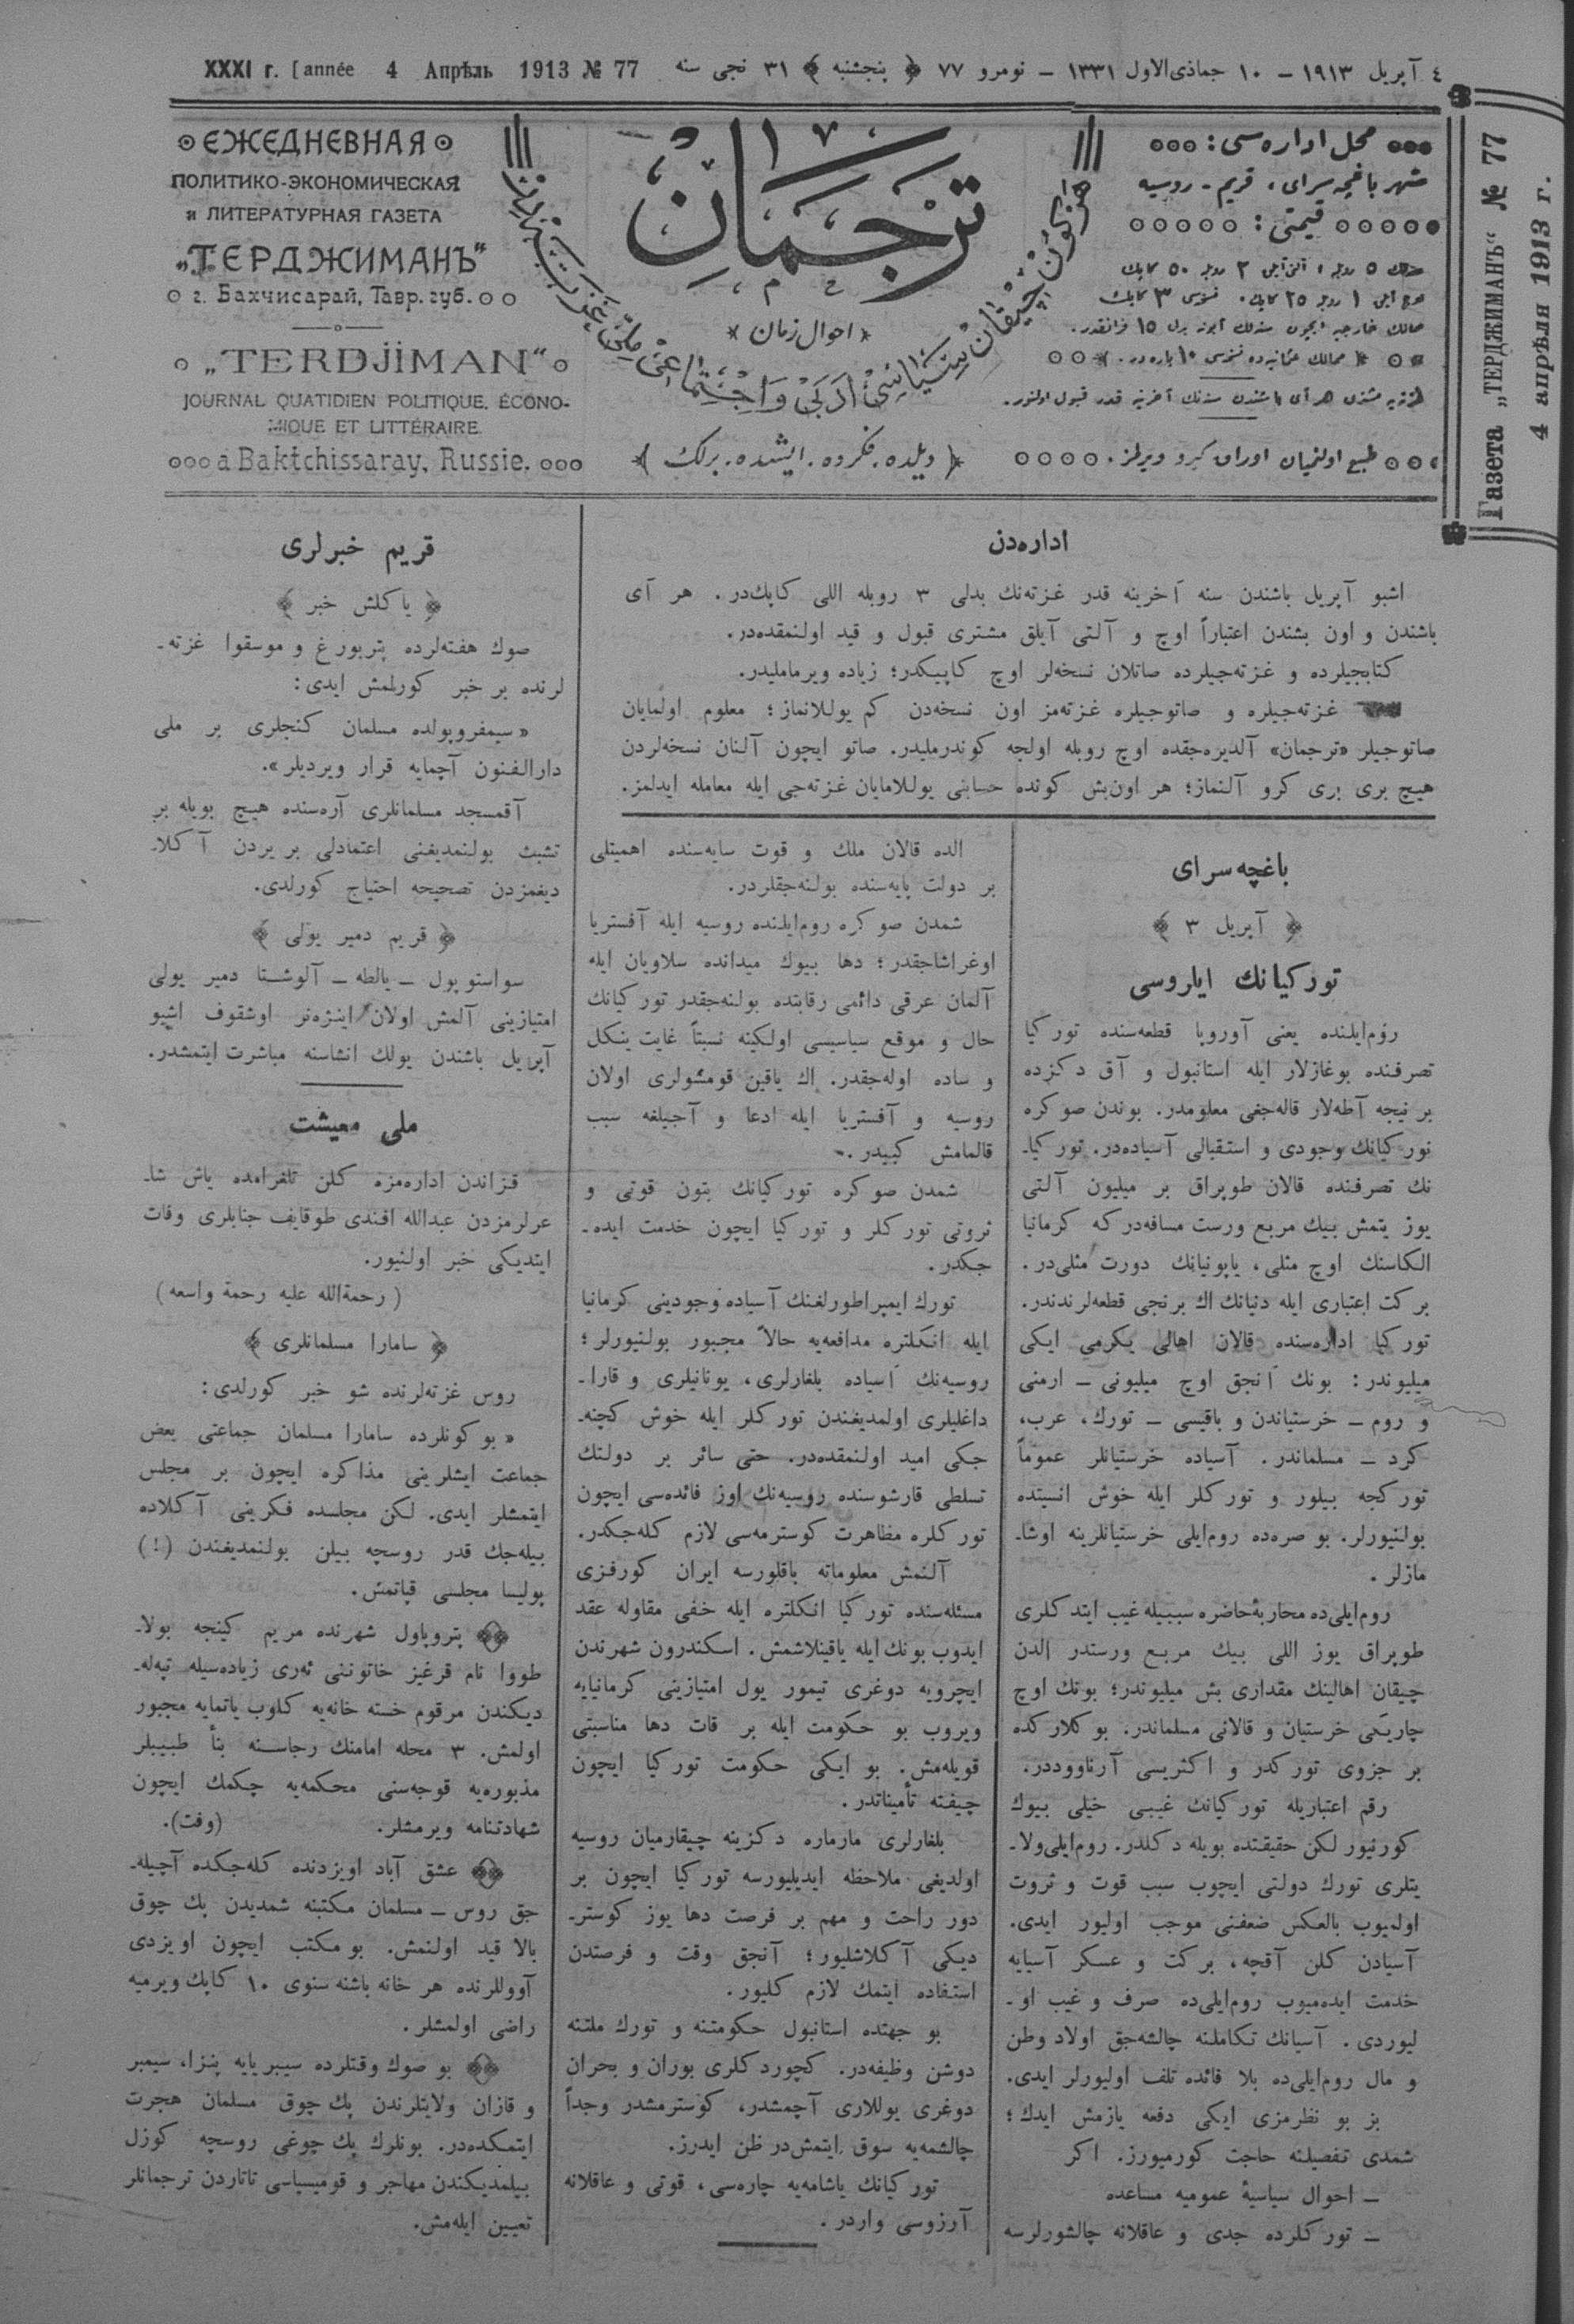 ٤ آپریل ١٩١٣ – ١٠ جماذی‌الاول ١٣٣١ – نومرو ٧٧ ﴿ پنجشنبه ﴾ ٣١ نجی سنه
XXXI г. [année 4 Апрѣль 1913 № 77
Газета „ТЕРДЖИМАНЪ“ № 77
4 апрѣля 1913 г.
محل اداره‌سی:
شهر باغچه‌سرای، قریم - روسیه
قیمتی:
طبع اولنمیان اوراق کیرو ویرلمز.
ترجمان
احوال زمان
﴿ دیلده. فکرده. ایشده. برلك ﴾
ЕЖЕДНЕВНАЯ
ПОЛИТИКО-ЭКОНОМИЧЕСКАЯ
и ЛИТЕРАТУРНАЯ ГАЗЕТА
„ТЕРДЖИМАНЪ“
г. Бахчисарай, Тавр. губ.
„TERDJiMAN“
JOURNAL QUATIDIEN POLITIQUE, ÉCONO-
MIQUE ET LITTÉRAIRE.
á Baktchissaray, Russie.
اداره‌دن
اشبو آپریل باشندن سنه آخرینه قدر غزته‌نك بدلی ٣ روبله اللی کاپك‌در. هر آی
باشندن و اون بشندن اعتباراً اوچ و آلتی آیلق مشتری قبول و قید اولنمقده‌در.
کتابجیلرده و غزته‌جیلرده صاتلان نسخه‌لر اوچ کاپیکدر؛ زیاده ویرماملیدر.
غزته‌جیلره و صاتوجیلره غزته‌مز اون نسخه‌دن کم یوللانماز؛ معلوم اولمایان
صاتوجیلر «ترجمان» آلدیره‌جقده اوچ روبله اولجه کوندرملیدر. صاتو ایچون آلنان نسخه‌لردن
هیچ بری بری کرو آلنماز؛ هر اون‌بش کونده حسابنی یوللامایان غزته‌جی ایله معامله ایدلمز.
باغچه سرای
﴿ آپریل ٣ ﴾
تورکیانك ایلروسی
رؤم‌ایلنده یعنی آوروپا قطعه‌سنده تورکیا
تصرفنده بوغازلار ایله استانبول و آق دکزده
بر نیجه آطه‌لار قاله‌جغی معلومدر. بوندن صوکره
تورکیانك وجودی و استقبالی آسیاده‌در. تورکیا-
نك تصرفنده قالان طوپراق بر میلیون آلتی
یوز یتمش بیك مربع ورست مسافه‌درکه کرمانیا
الکاسنك اوچ مثلی، یاپونیانك دورت مثلی‌در.
برکت اعتباری ایله دنیانك اك برنجی قطعه‌لرندندر.
تورکیا اداره‌سنده قالان اهالی یکرمی ایکی
میلیوندر: بونك آنجق اوچ میلیونی – ارمنی
و روم – خرستیاندن و باقیسی – تورك، عرب،
کرد – مسلماندر. آسیاده خرستیانلر عموماً
تورکجه بیلور و تورکلر ایله خوش انسیتده
بولنیورلر. بو صره‌ده روم‌ایلی خرستیانلرینه اوشا-
مازلر.
روم‌ایلی‌ده محاربهٔ حاضره سببیله غیب ایتدکلری
طوپراق یوز اللی بیك مربع ورستدر الدن
چیقان اهالینك مقداری بش میلیوندر؛ بونك اوچ
چاریکی خرستیان و قالانی مسلماندر. بوکلارکده
بر جزوی تورکدر و اکثریسی آرناووددر.
رقم اعتباریله تورکیانك غیبی خیلی بیوك
کورنیور لکن حقیقتده بویله دکلدر. روم‌ایلی‌ولا-
یتلری تورك دولتی ایچوب سبب قوت و ثروت
اولمیوب بالعکس ضعفنی موجب اولیور ایدی.
آسیادن کلن آقچه، برکت و عسکر آسیایه
خدمت ایده‌میوب روم‌ایلی‌ده صرف و غیب او-
لیوردی. آسیانك تکاملنه چالشه‌جق اولاد وطن
و مال روم‌ایلی‌ده بلا فائده تلف اولیورلر ایدی.
بز بو نظرمزی ایکی دفعه یازمش ایدك؛
شمدی تفصیلنه حاجت کورمیورز. اکر
– احوال سیاسیهٔ عمومیه مساعده
– تورکلرده جدی و عاقلانه چالشورلرسه
الده قالان ملك و قوت سایه‌سنده اهمیتلی
بر دولت پایه‌سنده بولنه‌جقلردر.
شمدن صوکره روم‌ایلنده روسیه ایله آفستریا
اوغراشاجقدر؛ دها بیوك میدانده سلاویان ایله
آلمان عرقی دائمی رقابتده بولنه‌جقدر تورکیانك
حال و موقع سیاسیسی اولکینه نسبتاً غایت ینکل
و ساده اوله‌جقدر. اك یاقین قومشولری اولان
روسیه و آفستریا ایله ادعا و آجیلغه سبب
قالمامش کبیدر.
شمدن صوکره تورکیانك بتون قوتی و
ثروتی تورکلر و تورکیا ایچون خدمت ایده-
جکدر.
تورك ایمپراطورلغنك آسیاده وجودینی کرمانیا
ایله انکلتره مدافعه‌یه حالاً مجبور بولنیورلر؛
روسیه‌نك آسیاده بلغارلری، یونانیلری و قارا-
داغلیلری اولمدیغندن تورکلر ایله خوش کچنه-
جکی امید اولنمقده‌در. حتی سائر بر دولتك
تسلطی قارشوسنده روسیه‌نك اوز فائده‌سی ایچون
تورکلره مظاهرت کوسترمه‌سی لازم کله‌جکدر.
آلنمش معلوماته باقلورسه ایران کورفزی
مسئله‌سنده تورکیا انکلتره ایله خفی مقاوله عقد
ایدوب بونك ایله یاقینلاشمش. اسکندرون شهرندن
ایچرویه دوغری تیمور یول امتیازینی کرمانیایه
ویروب بو حکومت ایله بر قات دها مناسبتی
قویله‌مش. بو ایکی حکومت تورکیا ایچون
چیفته تأمیناتدر.
بلغارلری مارماره دکزینه چیقارمیان روسیه
اولدیغی ملاحظه ایدیلیورسه تورکیا ایچون بر
دور راحت و مهم بر فرصت دها یوز کوستر-
دیکی آکلاشلیور؛ آنجق وقت و فرصتدن
استفاده ایتمك لازم کلیور.
بو جهتده استانبول حکومتنه و تورك ملتنه
دوشن وظیفه‌در. کچوردکلری بوران و بحران
دوغری یوللاری آچمشدر، کوسترمشدر وجداً
چالشمه‌یه سوق ایتمش‌در ظن ایدرز.
تورکیانك یاشامه‌یه چاره‌سی، قوتی و عاقلانه
آرزوسی واردر.
قریم خبرلری
﴿ یاکلش خبر ﴾
صوك هفته‌لرده پتربورغ و موسقوا غزته-
لرنده بر خبر کورلمش ایدی:
«سیمفروپولده مسلمان کنجلری بر ملی
دارالفنون آچمایه قرار ویردیلر».
آقمسجد مسلمانلری آره‌سنده هیچ بویله بر
تشبث بولنمدیغنی اعتمادلی بر یردن آکلا-
دیغمزدن تصحیحه احتیاج کورلدی.
﴿ قریم دمیر یولی ﴾
سواستوپول – یالطه – آلوشتا دمیر یولی
امتیازینی آلمش اولان اینژه‌نر اوشقوف اشبو
آپریل باشندن یولك انشاسنه مباشرت ایتمشدر.
ملی معیشت
قزاندن اداره‌مزه کلن تلغرامده یاش شا-
عرلرمزدن عبدالله افندی طوقایف جنابلری وفات
ایتدیکی خبر اولنیور.
(رحمةالله علیه رحمة واسعه)
﴿ سامارا مسلمانلری ﴾
روس غزته‌لرنده شو خبر کورلدی:
«بو کونلرده سامارا مسلمان جماعتی بعض
جماعت ایشلرینی مذاکره ایچون بر مجلس
ایتمشلر ایدی. لکن مجلسده فکرینی آکلاده
بیله‌جك قدر روسچه بیلن بولنمدیغندن (!)
پولیسا مجلسی قپاتمش.
پتروپاول شهرنده مریم کینجه بولا-
طووا نام قرغیز خاتوننی ئه‌ری زیاده‌سیله تپه‌له-
دیکندن مرقوم خسته خانه‌یه کلوب یاتمایه مجبور
اولمش. ٣ محله امامنك رجاسنه بناً طبیبلر
مذبوره‌یه قوجه‌سنی محکمه‌یه چکمك ایچون
شهادتنامه ویرمشلر. (وقت).
عشق آباد اویزدنده کله‌جکده آچیله-
جق روس – مسلمان مکتبنه شمدیدن پك چوق
بالا قید اولنمش. بو مکتب ایچون اویزدی
آووللرنده هر خانه باشنه سنوی ١٠ کاپك ویرمیه
راضی اولمشلر.
بو صوك وقتلرده سیبریایه پنزا، سیمبر
و قازان ولایتلرندن پك چوق مسلمان هجرت
ایتمکده‌در. بونلرك پك چوغی روسچه کوزل
بیلمدیکندن مهاجر و قومیسیاسی تاتاردن ترجمانلر
تعیین ایله‌مش.